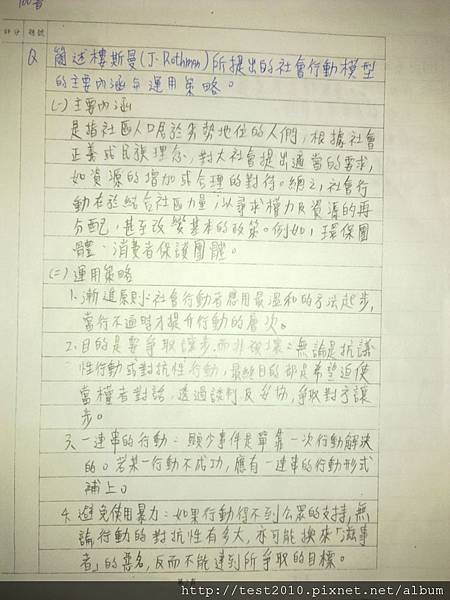 100普
評分 題號
Q 簡述樓斯曼(J. Rothman)所提出的社會行動模型
的主要內涵與運用策略。
(一)主要內涵
是指社區人口居於劣勢地位的人們，根據社會
正義或民族理念，對大社會提出適當的要求，
如資源的增加或合理的對待。總之，社會行
動在於結合社區力量，以尋求權力及資源的再
分配，甚至改變基本的政策。例如，環保團
體、消費者保護團體。
(二)運用策略
1.漸進原則：社會行動者應用最溫和的方法起步，
當行不通時才提升行動的層次。
2.目的是要爭取讓步，而非破壞：無論是抗議
性行動或對抗性行動，最終目的都是希望迫使
當權者對話，透過談判及妥協，爭取對方讓
步。
3.一連串的行動：頗少事件是單靠一次行動解決
的。若某一行動不成功，應有一連串的行動形式
補上。
4.避免使用暴力：如果行動得不到公眾的支持，無
論行動的對抗性有多大，亦可能換來「滋事
者」的惡名，反而不能達到所爭取的目標。
http://test2010.pixnet.net/album